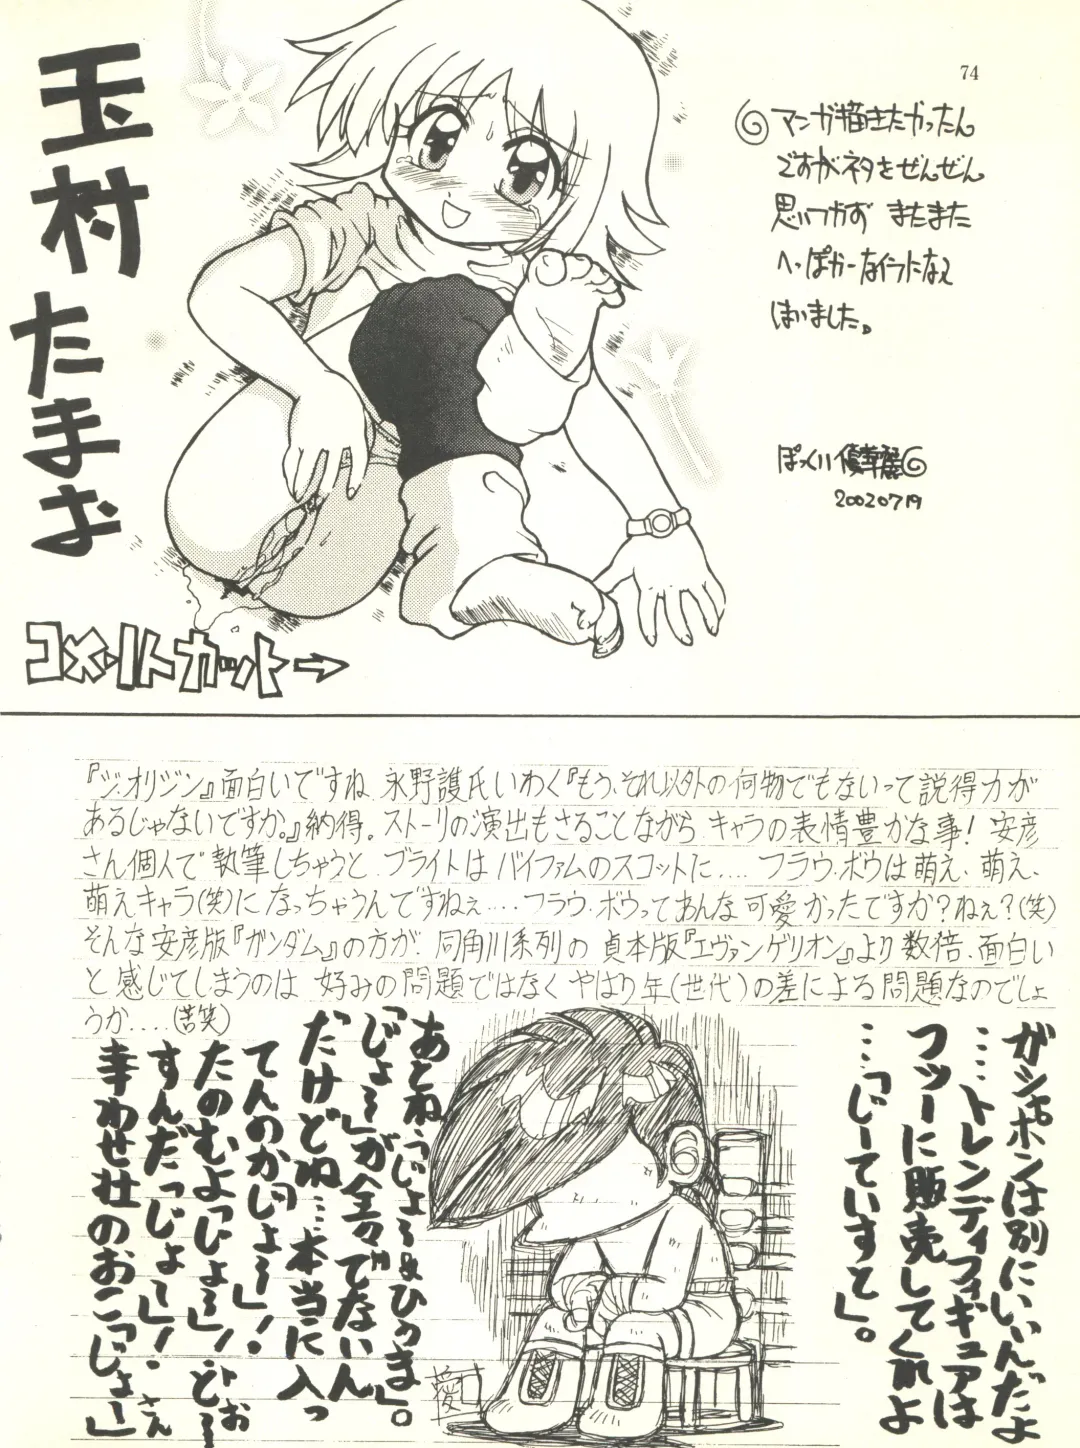 74
玉村たまお
マンガ描きたかったん
ですがネタをぜんぜん
思いつかず またまた
へっぽかーなイラストになって
しまいました。
ぽっくりい優華麗
20020719
コメントカット→
『ジ・オリジン』面白いですね 永野護氏いわく『もう、それ以外の何物でもないって説得力が
あるじゃないですか。』納得。ストーリの演出もさることながら キャラの表情豊かな事! 安彦
さん個人で執筆しちゃうと ブライトはバイファムのスコットに.... フラウ・ボウは萌え、萌え、
萌えキャラ(笑)になっちゃうんですねぇ....フラウ・ボウってあんな可愛かったですか?ねぇ?(笑)
そんな安彦版『ガンダム』の方が 同角川系列の 貞本版『エヴァンゲリオン』より数倍、面白い
と感じてしまうのは 好みの問題ではなく やはり年(世代)の差による問題なのでしょ
うか....(苦笑)
ガシャポンは別にいいんだよ
……トレンディフィギュアは
フツーに販売してくれよ
……「じーていすと」。
あとね「じょ〜&ひりま」。
「じょ〜」が全々でないん
だけどね…本当に入っ
てんのか「じょ〜」!
たのむよっじょ〜」!ど〜
すんだっじょ〜」!・
幸わせ壮のおこっじょ〜」
愛